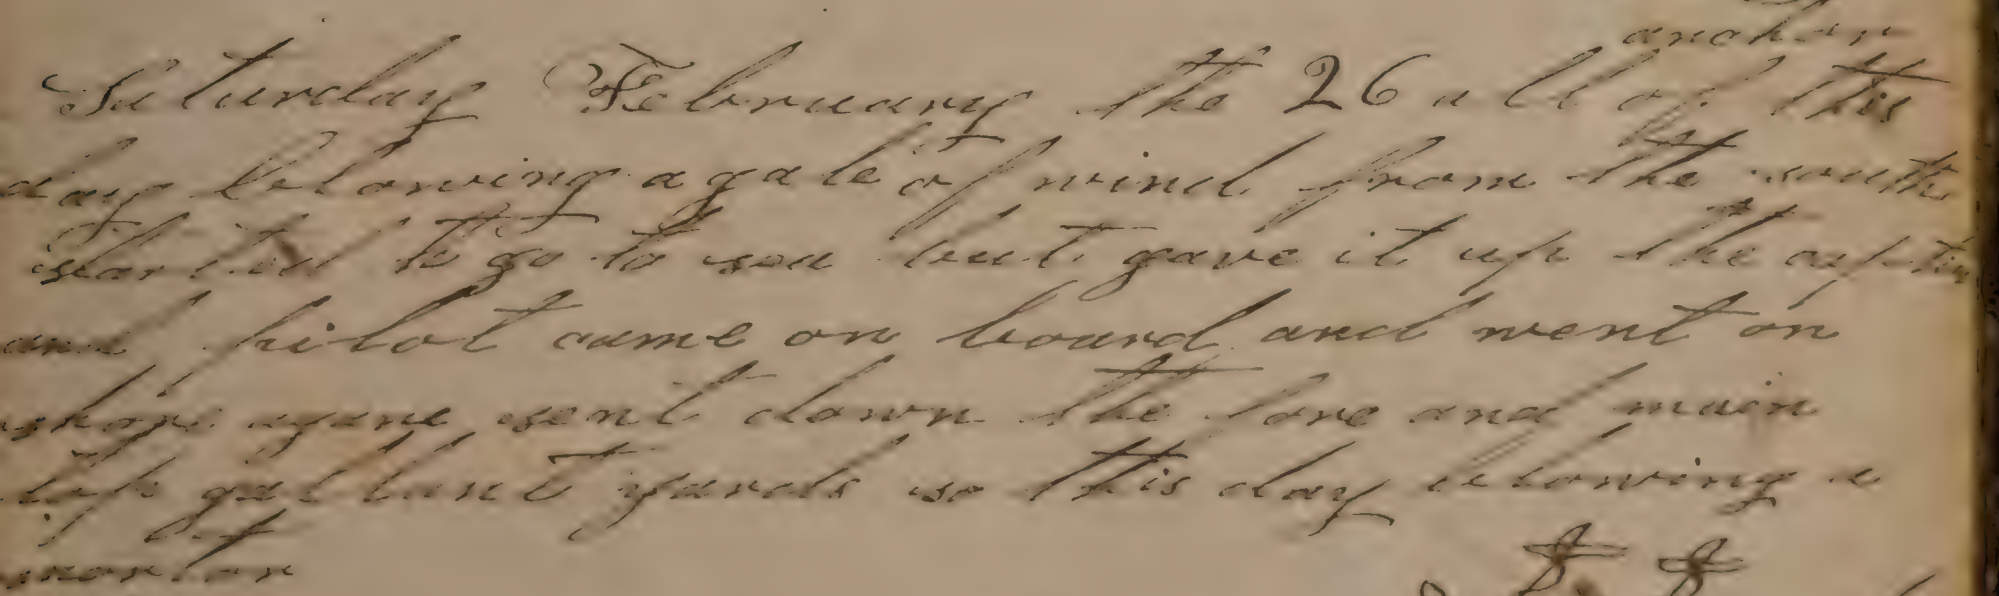 anchor
Saturday February the 26 all of this
day blowing a gale of wind from the south
started to go to sea but gave it up the captin
and pilot came on board and went on
shore agane sent down the fore and main
top gallant yards so this day blowing a